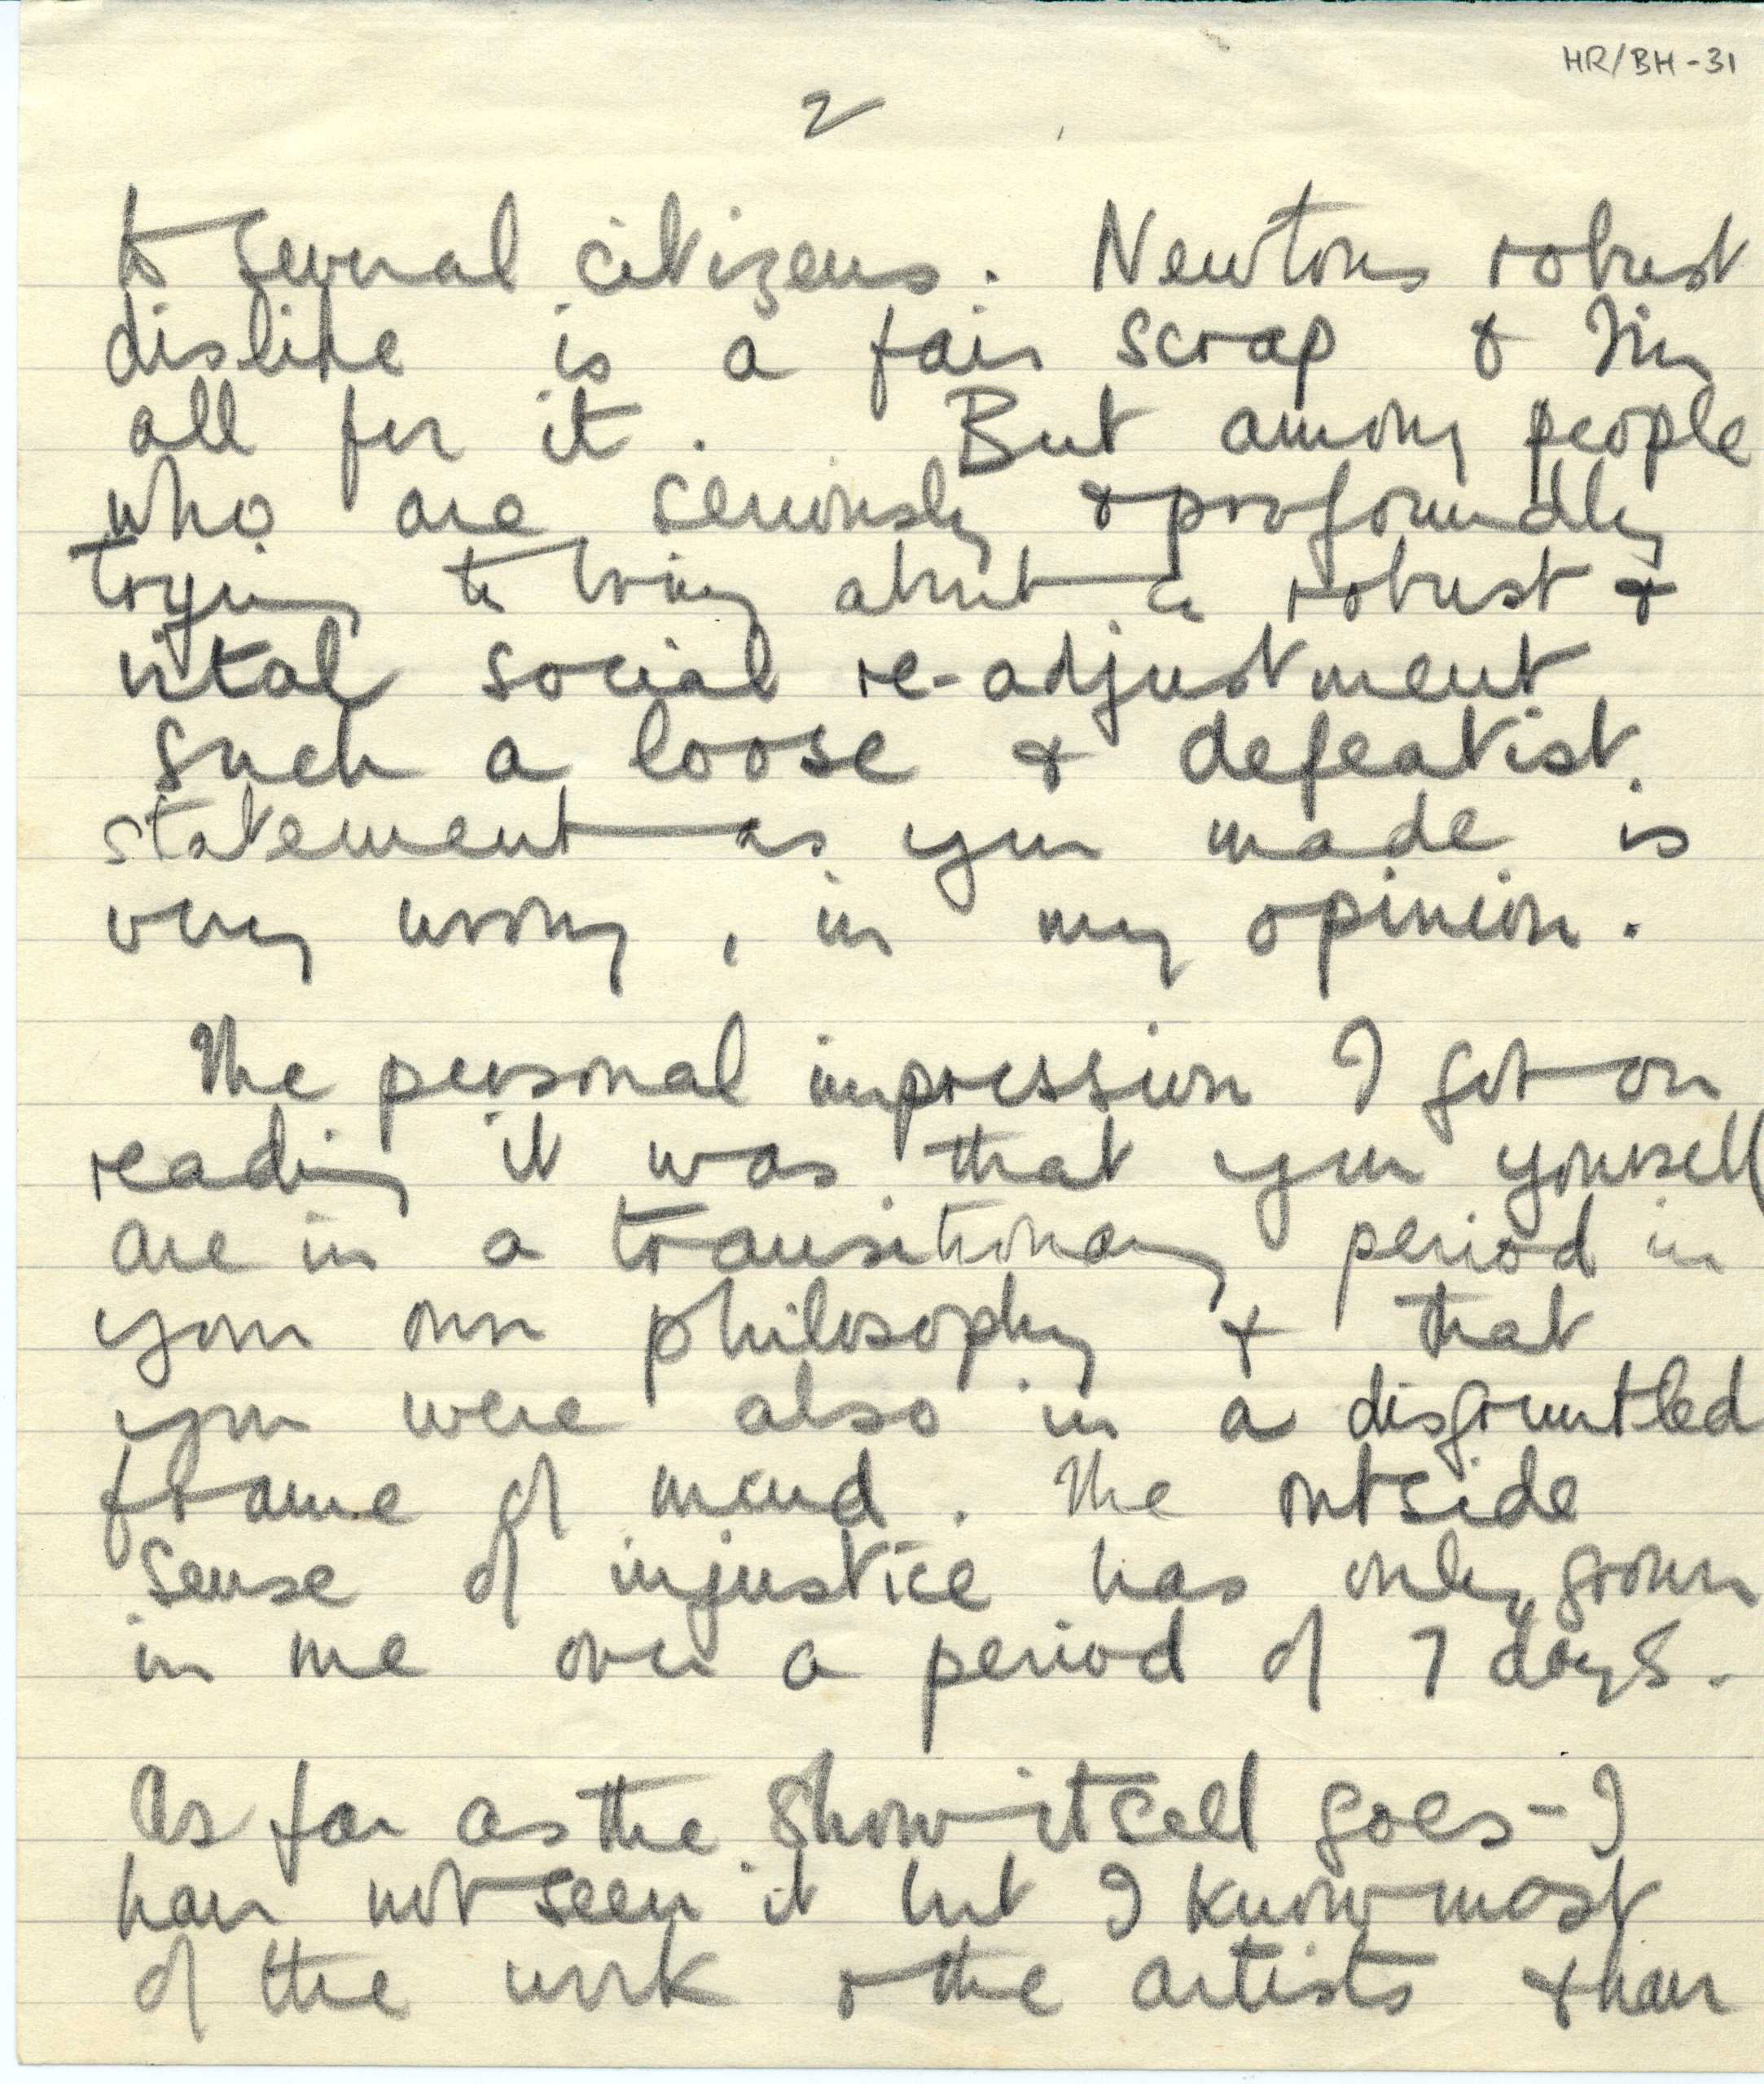 HR/BH-31
2
to several citizens. Newtons robust
dislike is a fair scrap & I'm
all for it. But among people
who are seriously & profoundly
trying to bring about a robust &
vital social re-adjustment
such a loose & defeatist
statement as you made is
very wrong, in my opinion.
The personal impression I got on
reading it was that you yourself
are in a transitionary period in
your own philosophy & that
you were also in a disgruntled
frame of mind. The outside
sense of injustice has only grown
in me over a period of 7 days.
As far as the show itself goes - I
have not seen it but I know most
of the work & the artists & have